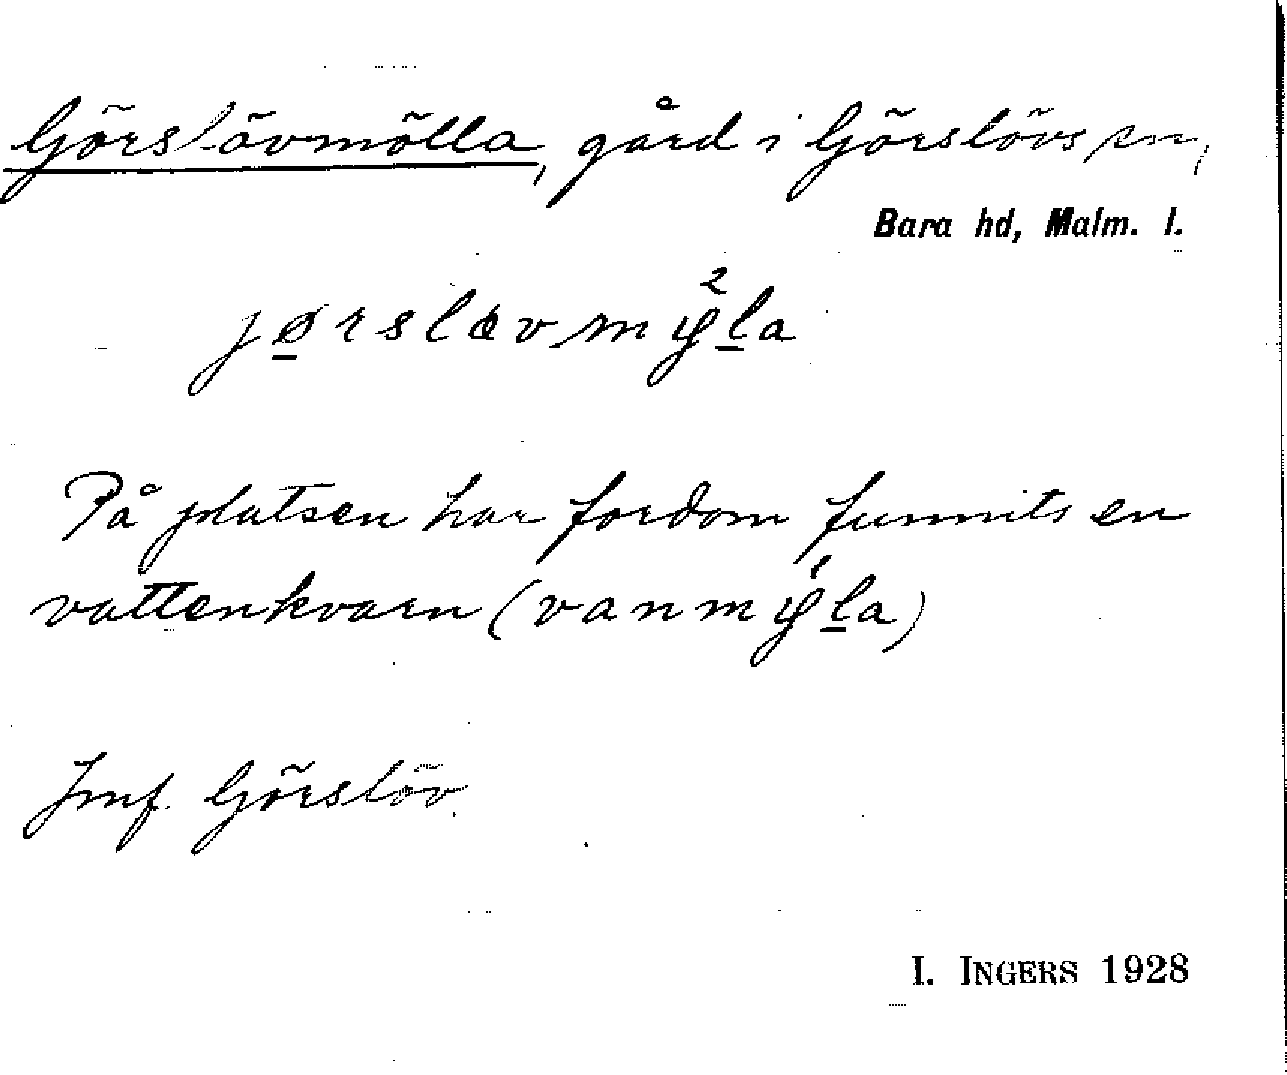 Görslövmölla, gård i Görslövs sn,
Bara hd, Malm. l.
På platsen har fordom funnits en
vattenkvarn (
Imf. Görslöv.
I. INGERS 1928